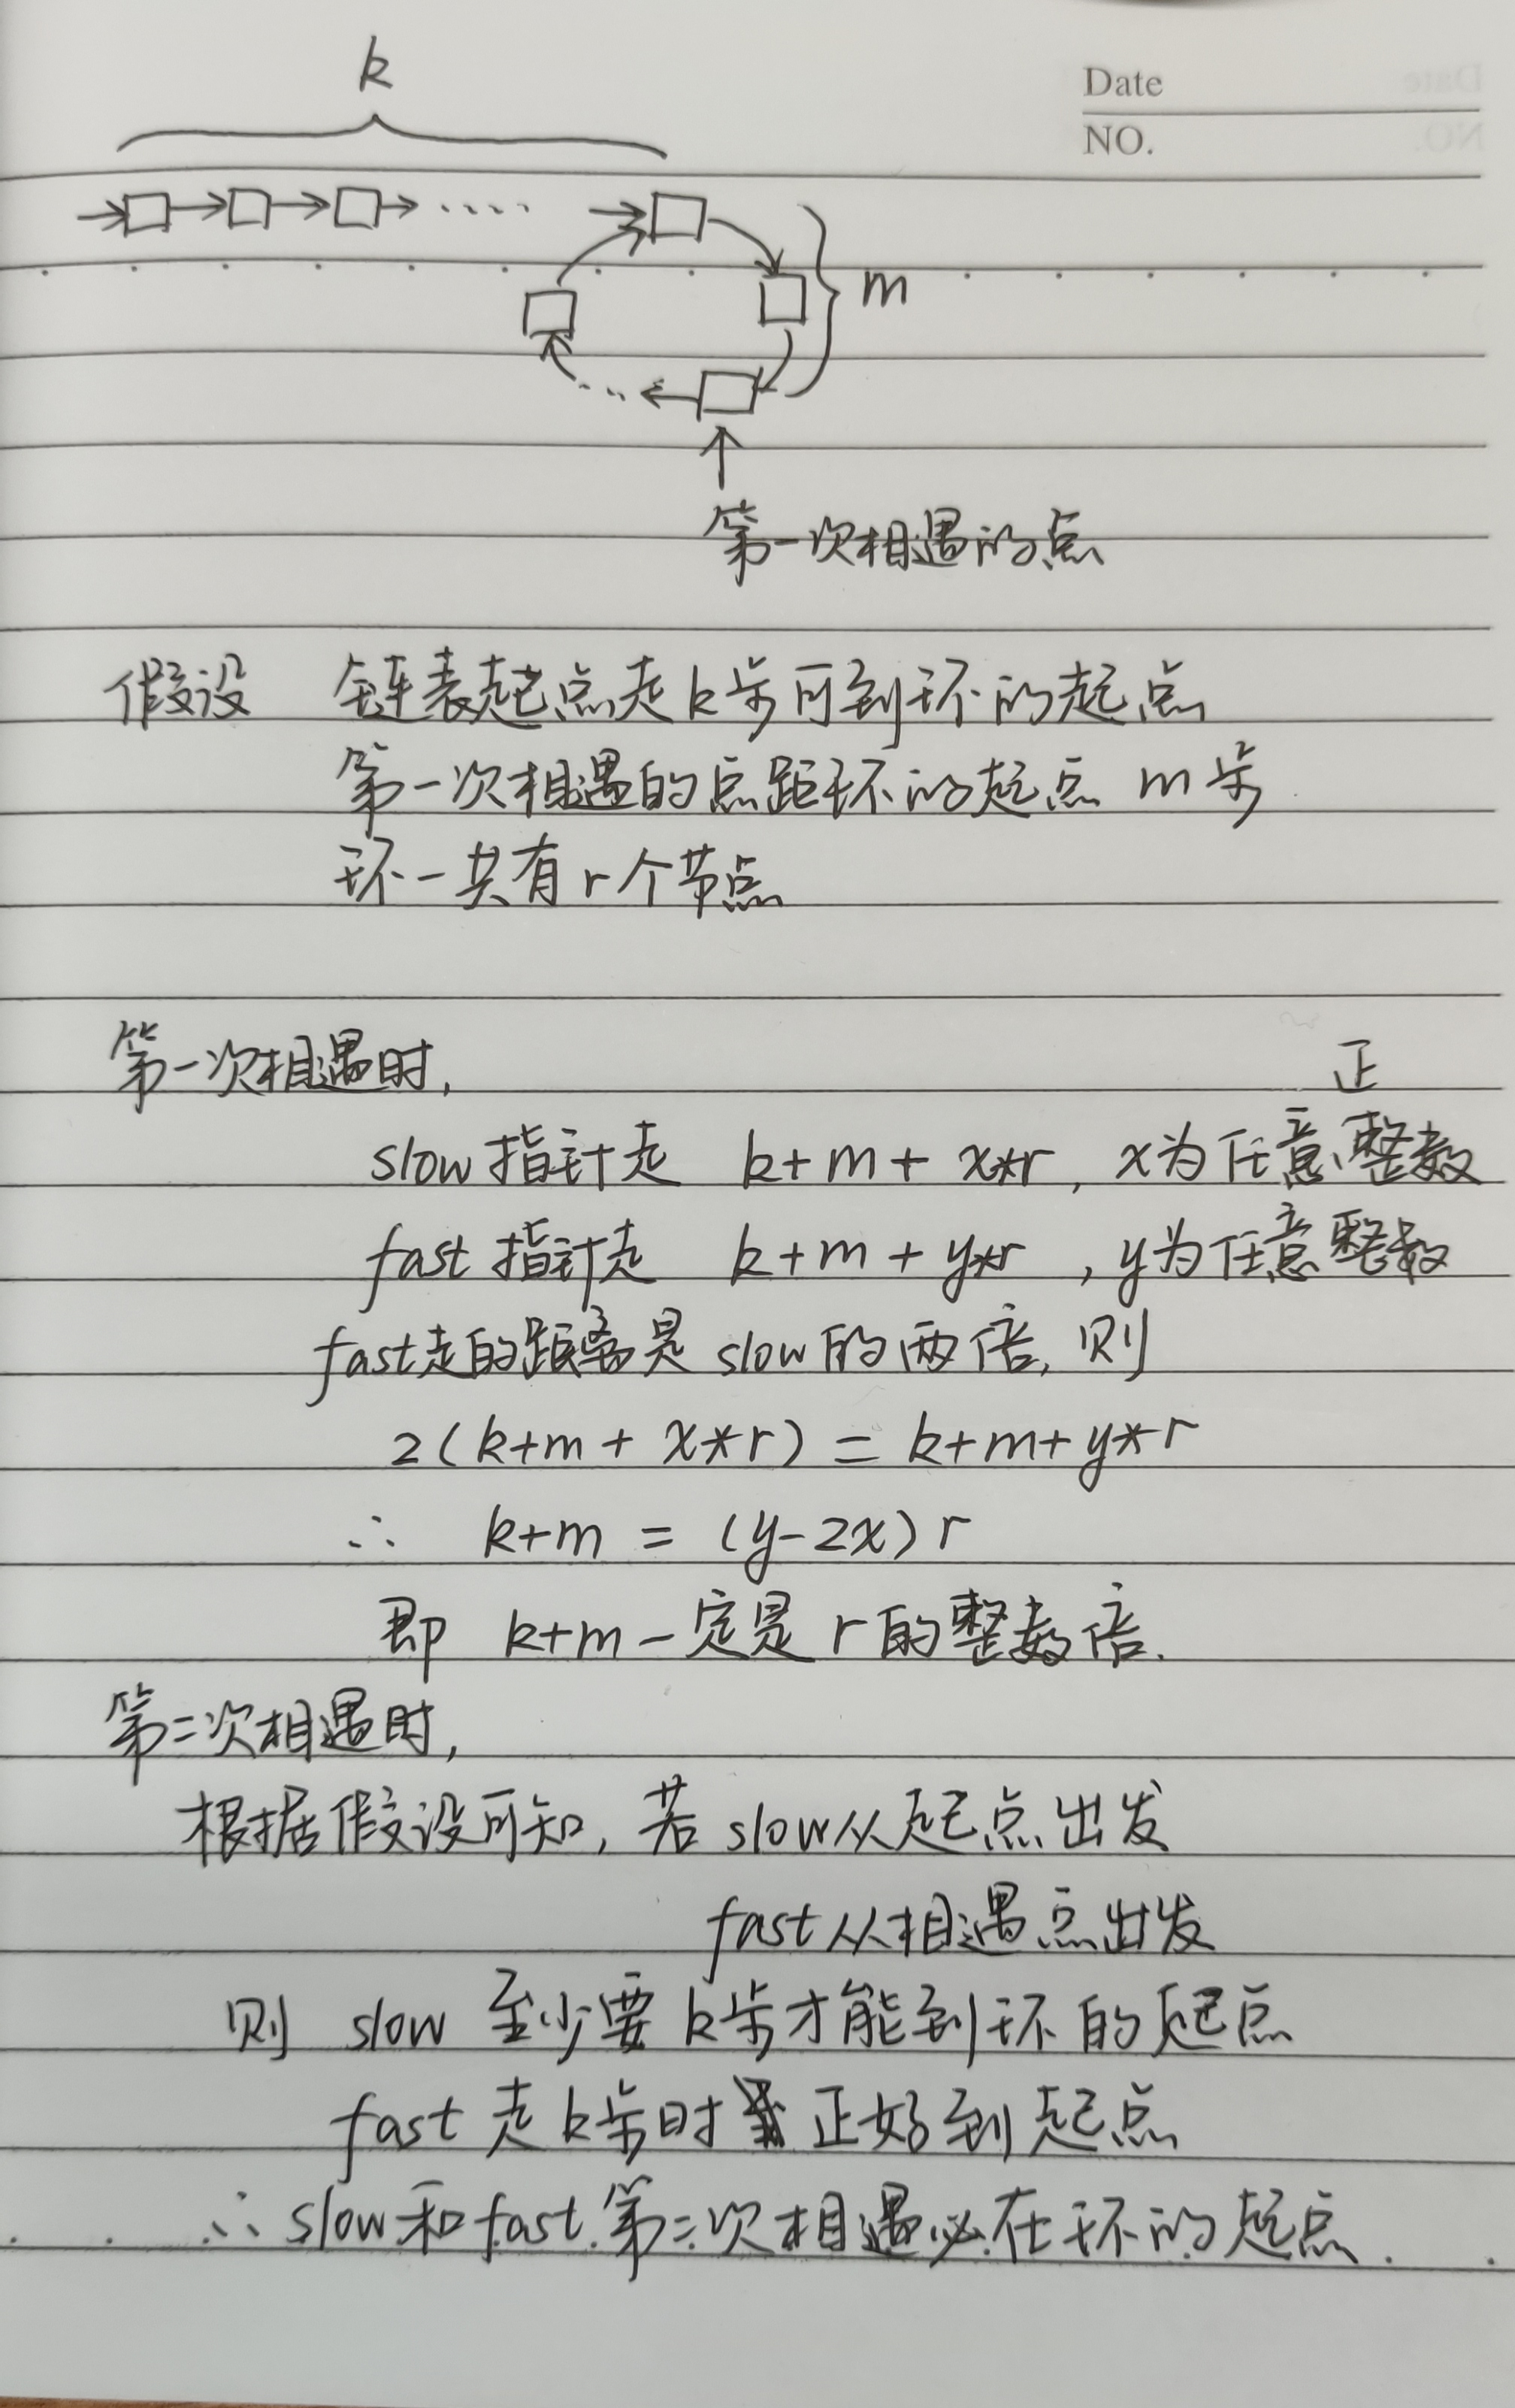 k
Date
NO.
m
第一次相遇的点
假设 链表起点走k步可到环的起点
第一次相遇的点距环的起点 m步
环一共有r个节点
第一次相遇时,
正
slow指针走 k+m+x*r, x为任意整数
fast指针走 k+m+y*r ,y为任意整数
fast走的距离是slow的两倍,则
2(k+m+x*r)=k+m+y*r
∴ k+m=(y-2x)r
即 k+m一定是r的整数倍.
第二次相遇时,
根据假设可知,若slow从起点出发
fast从相遇点出发
则 slow至少要k步才能到环的起点
fast走k步时 正好到起点
∴ slow和fast第二次相遇必在环的起点.